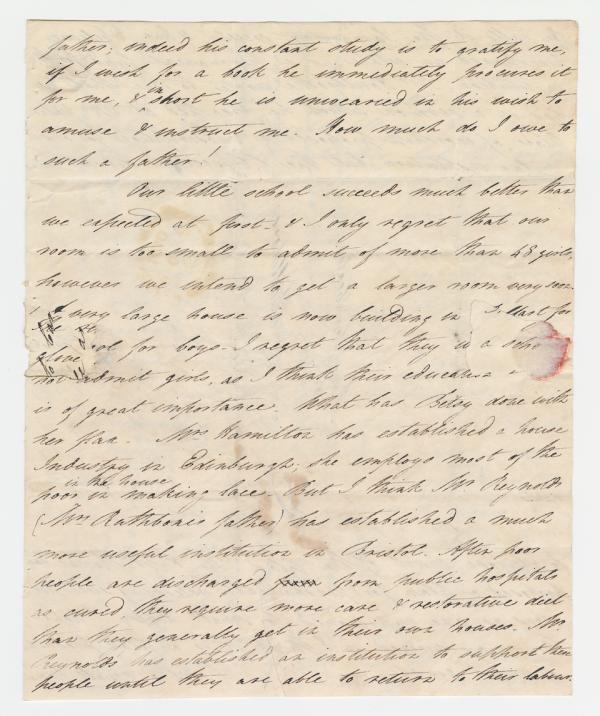 father; indeed his constant study is to gratify me,
if I wish for a book he immediately procures it
for me, & in short he is unwearied in his wish to
amuse & instruct me. How much do I owe to
such a father!
Our little school succeeds much better than
we expected at first - & I only regret that our
room is too small to admit of more than 48 girls,
however we intend to get a larger room very soon.
very large house is now building in
for boys - I regret that they
not admit girls, as I think their
is of great importance. What has Betsy done with
her plan. Mrs Hamilton has established a house
Industry in Edinburgh; she employs most of the
poor in the house in making lace. But I think Mr Reynolds
(Mrs Rathbone's father) has established a much
more useful institution in Bristol. After poor
people are discharged from public hospitals
as cured they require more care & restorative diet
than they generally get in their own houses. Mr.
Reynolds has established an institution to support these
people until they are able to return to their labour.